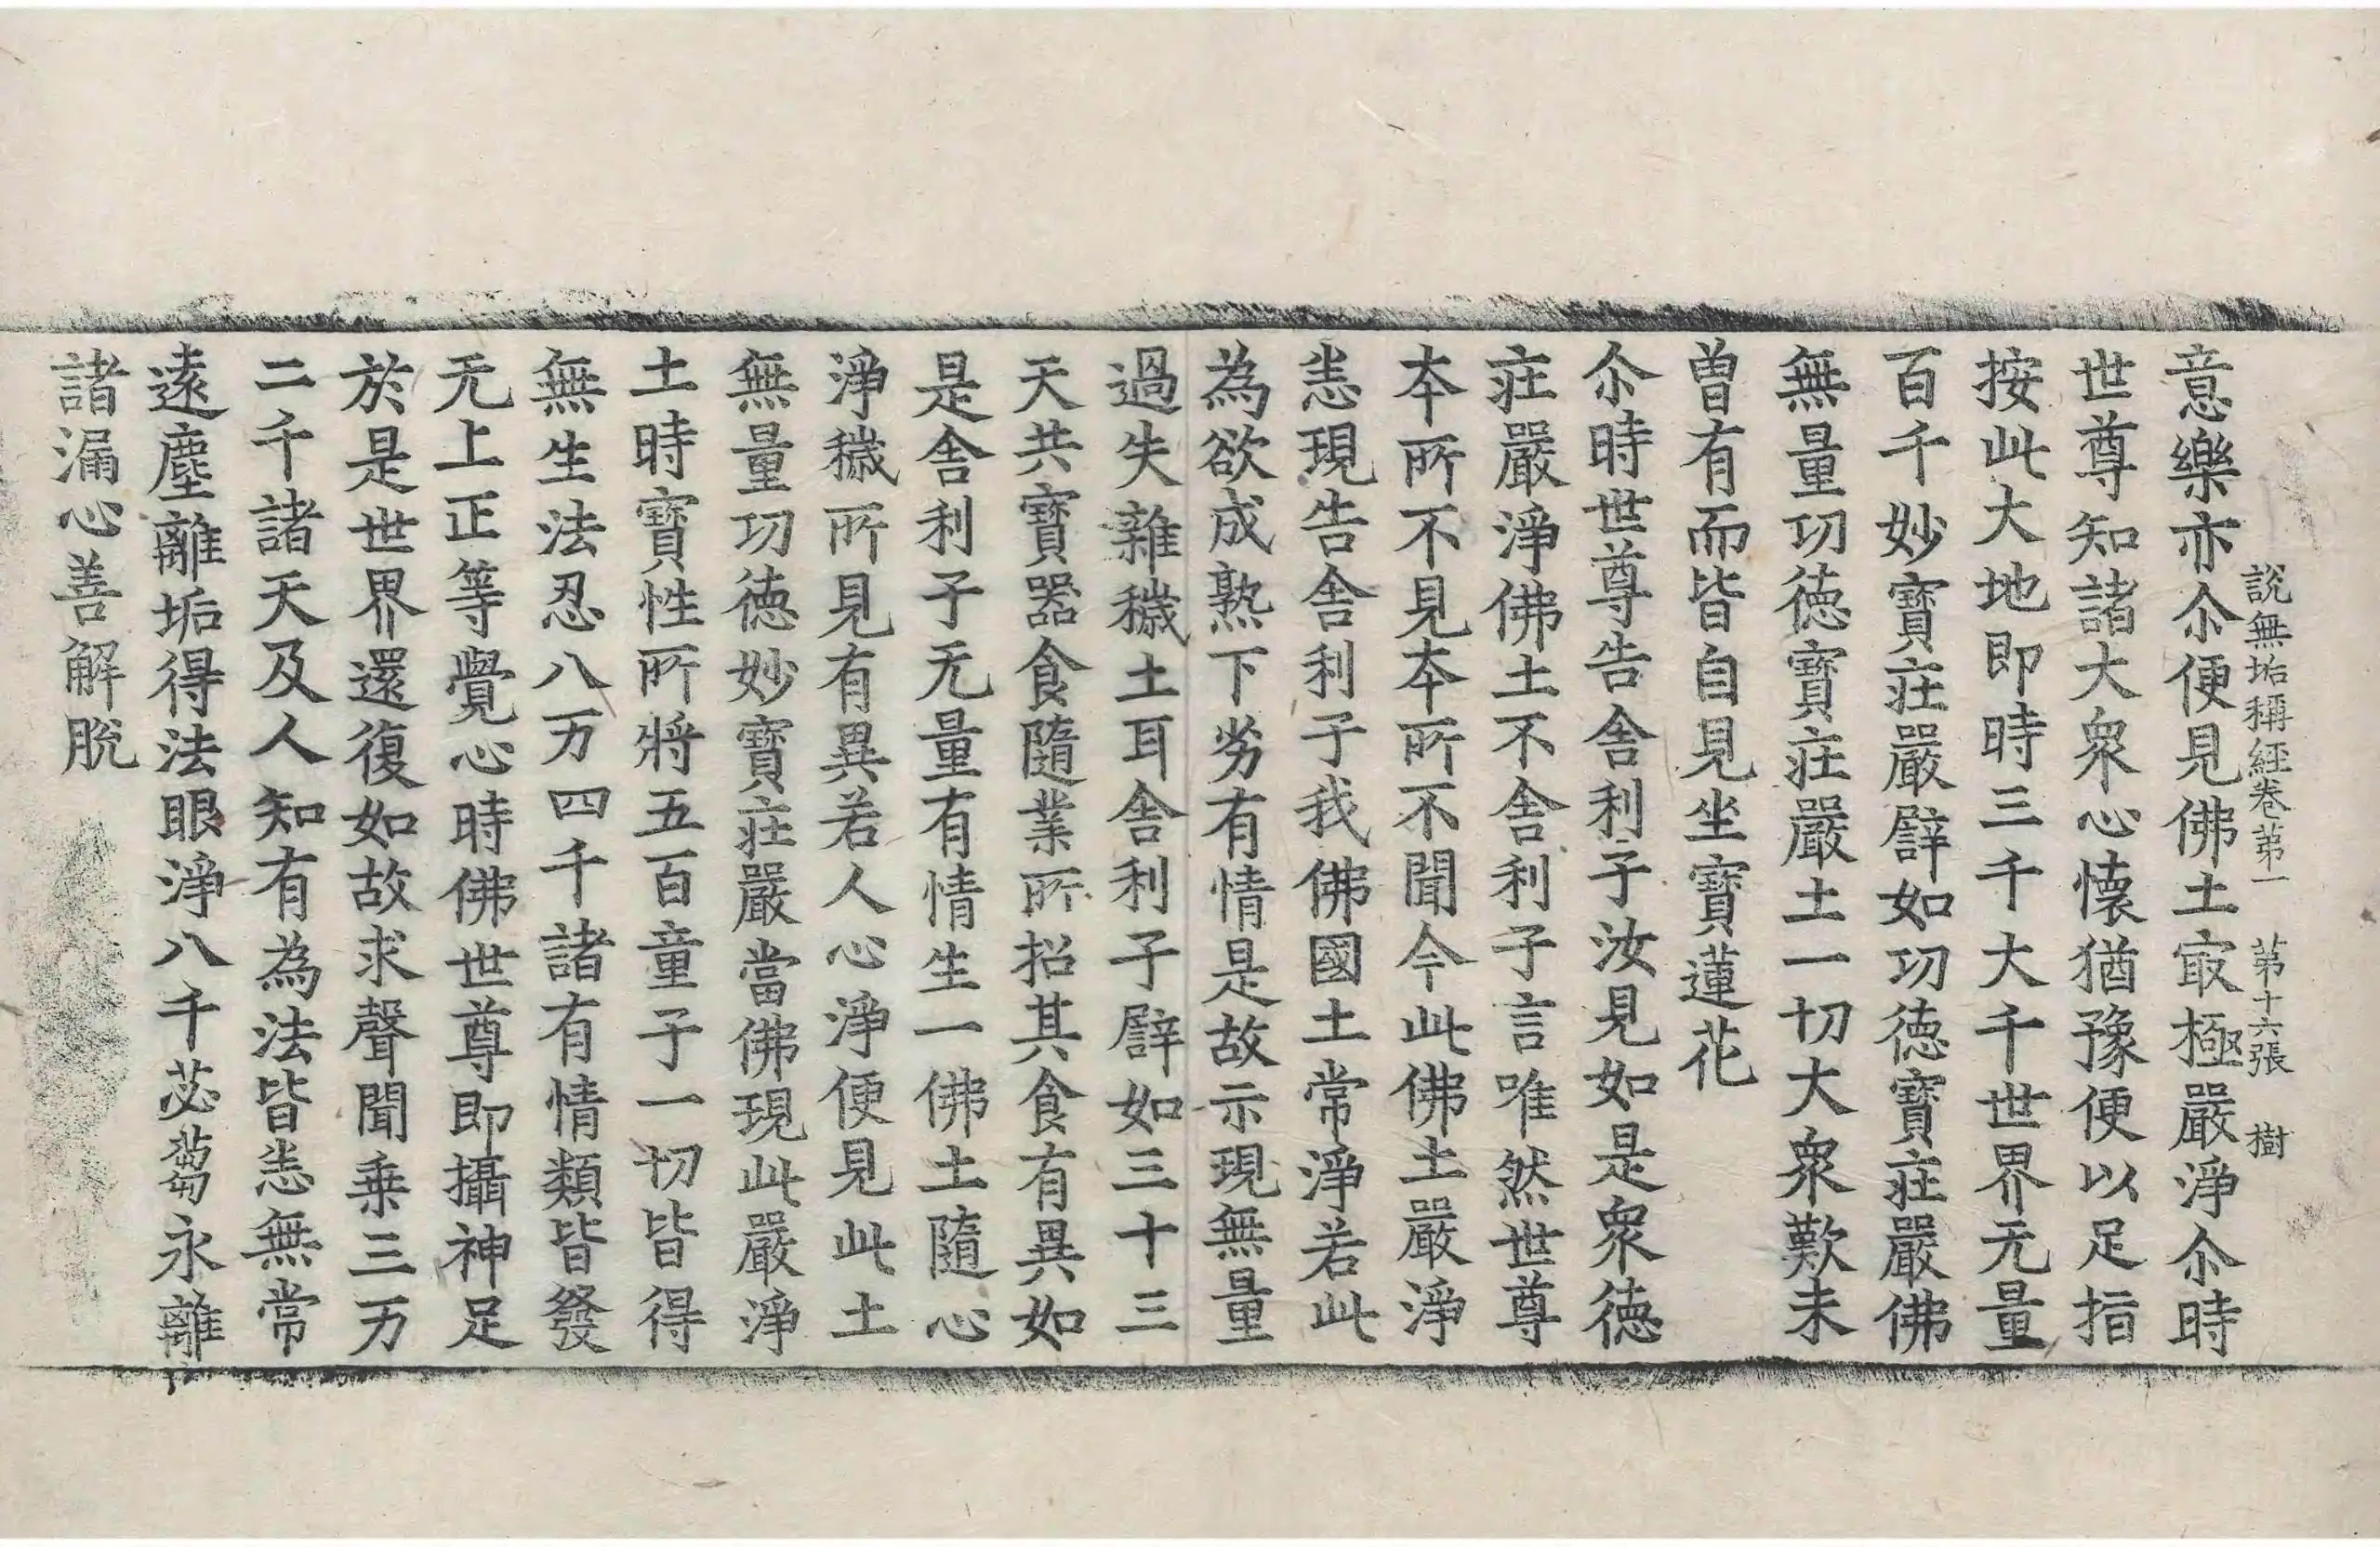 說無垢稱經卷苐一 苐十六張 樹
意樂亦尒便見佛土㝡極嚴淨尒時
世尊知諸大衆心懷猶豫便以足指
按此大地即時三千大千世界无量
百千妙寶莊嚴譬如功德寶莊嚴佛
無量功德寶莊嚴土一切大衆歎未
曾有而皆自見坐寶蓮花
尒時世尊告舍利子汝見如是衆德
莊嚴淨佛土不舍利子言唯然世尊
本所不見本所不聞今此佛土嚴淨
悉現告舍利子我佛國土常淨若此
為欲成熟下劣有情是故示現無量
過失雜穢土耳舍利子譬如三十三
天共寶器食隨業所招其食有異如
是舍利子无量有情生一佛土隨心
淨穢所見有異若人心淨便見此土
無量功德妙寶莊嚴當佛現此嚴淨
土時寶性所將五百童子一切皆得
無生法忍八万四千諸有情類皆發
无上正等覺心時佛世尊即攝神足
於是世界還復如故求聲聞乗三万
二千諸天及人知有為法皆悉無常
遠塵離垢得法眼淨八千苾蒭永離
諸漏心善解脫